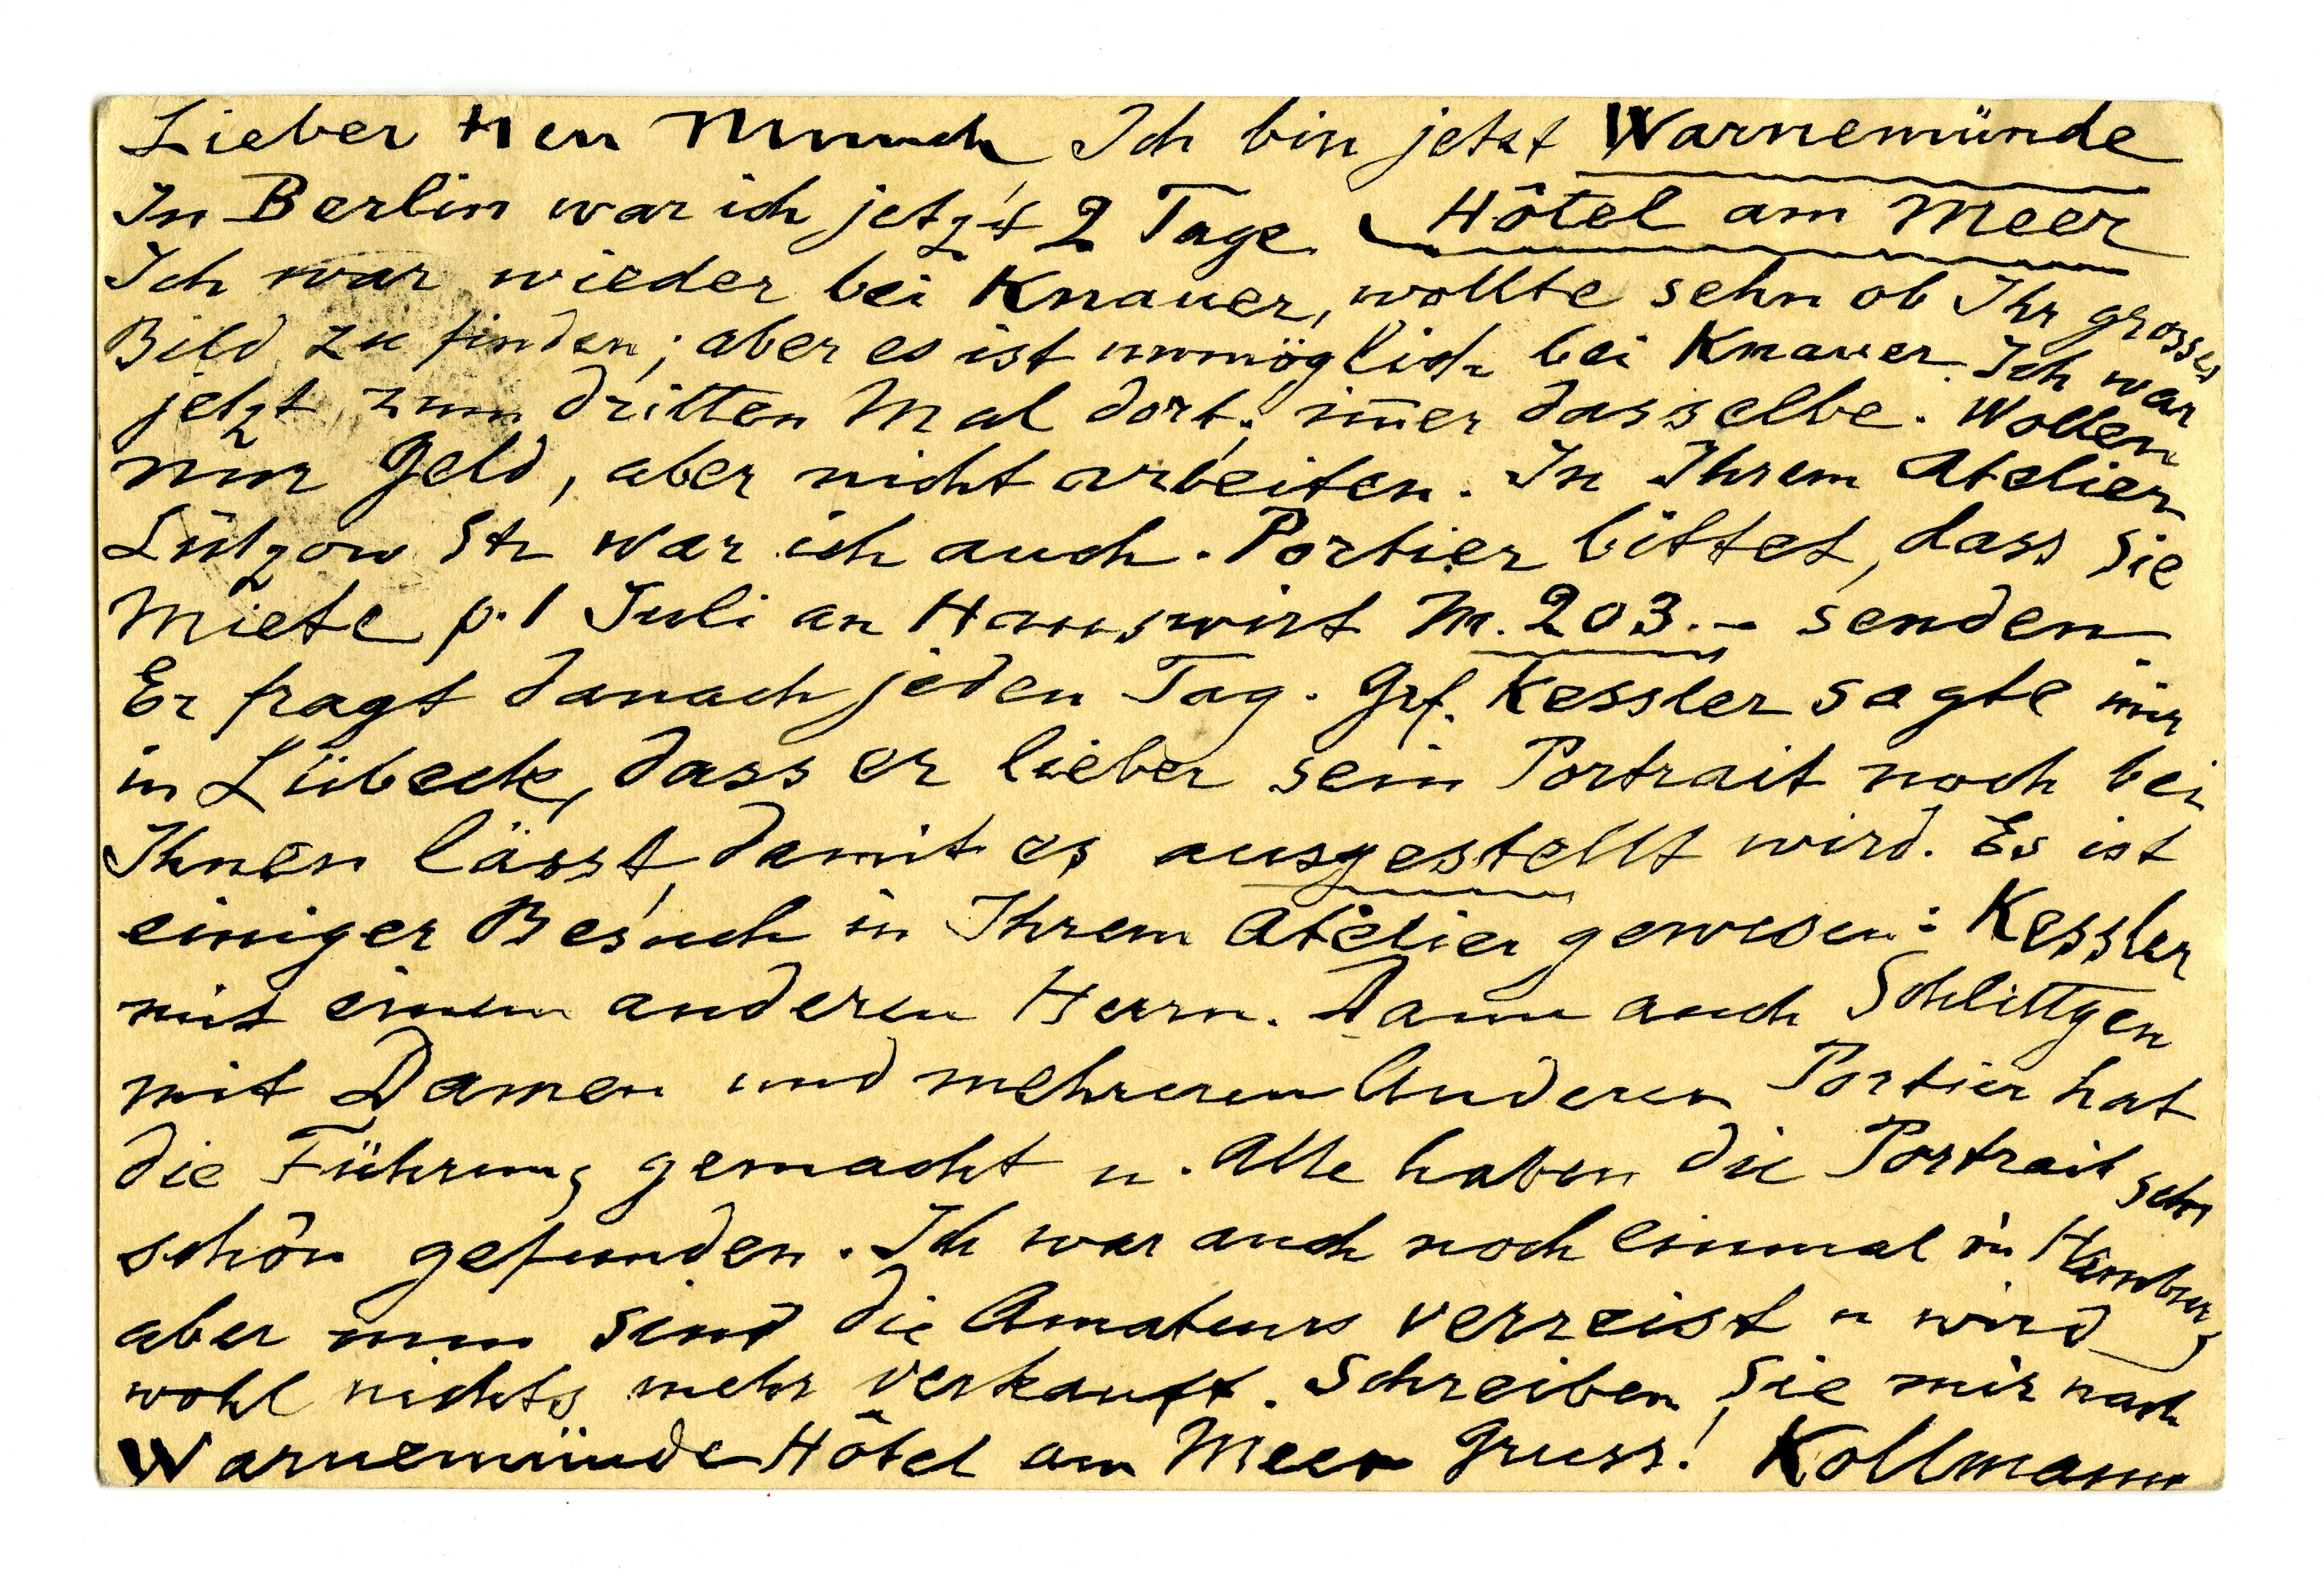 Lieber Herr Munch Ich bin jetzt Warnemünde
In Berlin war ich jetzt 2 Tage Hôtel am Meer
Ich war wieder bei Knauer, wollte sehn ob Ihr grosses
Bild zu finden; aber es ist unmöglich bei Knauer. Ich war
jetzt zum dritten Mal dort; im̅er dasselbe. Wollen
nur Geld, aber nicht arbeiten. In Ihrem Atelier
Lützow Str war ich auch. Portier bittet, dass Sie
Miete p. 1 Juli an Hauswirt M. 203.– senden
Er fragt danach jeden Tag. Grf. Kessler sagte mir
in Lübeck, dass er lieber sein Portrait noch bei
Ihnen lässt, damit es ausgestellt wird. Es ist
einiger Besuch in Ihrem Atelier gewesen: Kessler
mit einem anderen Herrn. Dann auch Schlittgen
mit Damen und mehreren Anderen Portier hat
die Führung gemacht u. Alle haben die Portrait sehr
schön gefunden. Ich war auch noch einmal in Hamburg
aber nun sind die Amateurs verreist u wird
wohl nichts mehr verkauft. Schreiben Sie mir nach
Warnemünde Hôtel am Meer Gruss! Kollmann